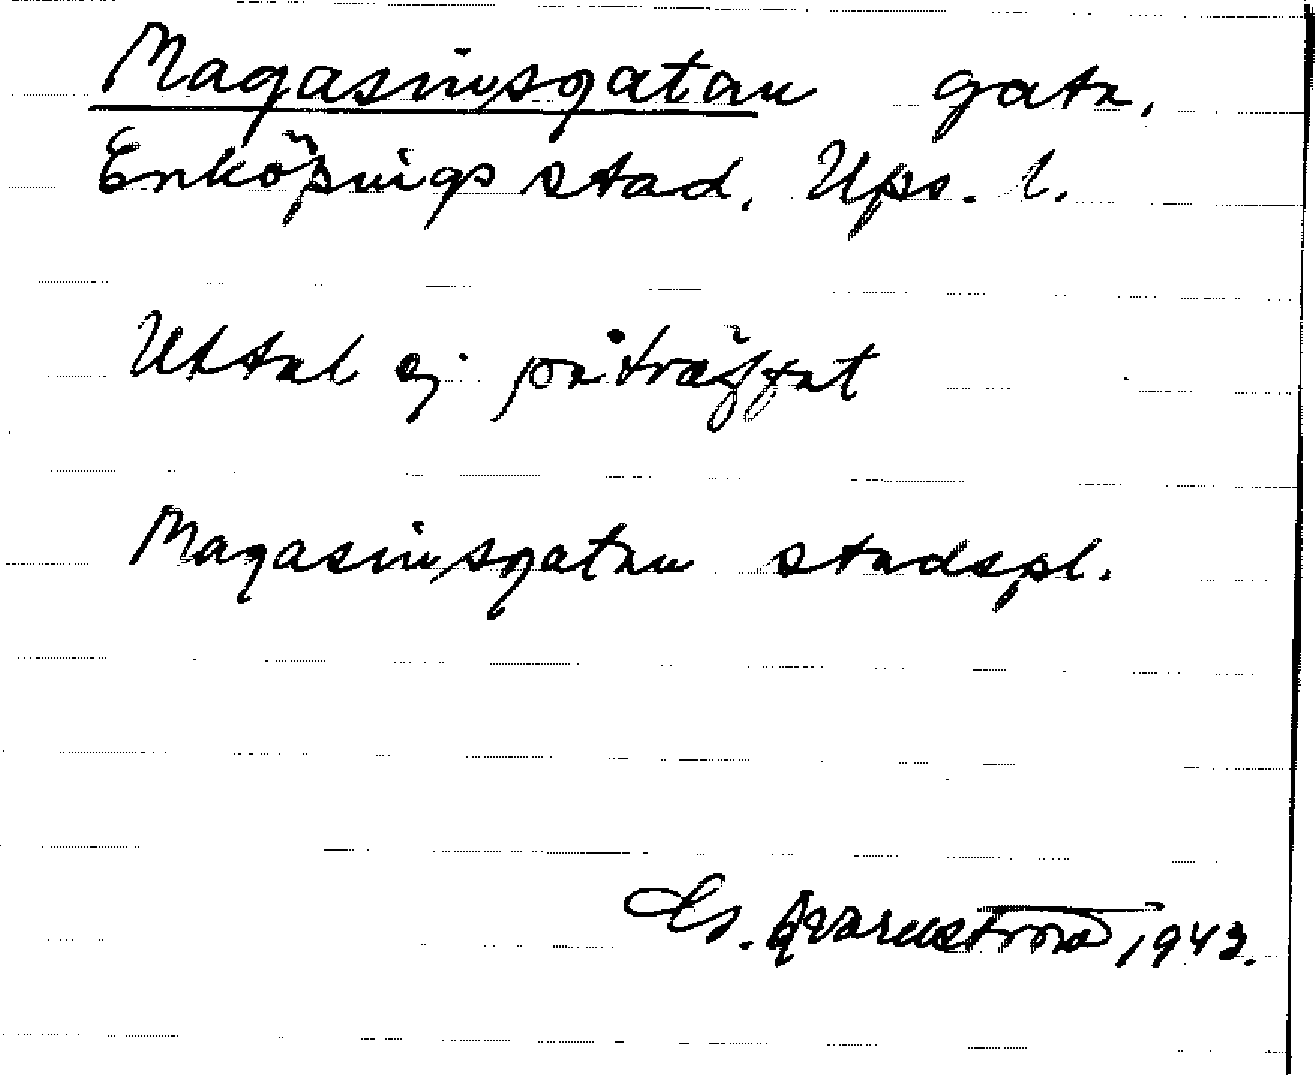 Magasinsgatan gata,
Enköpings stad. Ups. l.
Uttal ej påträffat
Magasinsgatan stadspl.
Qvarnström 1942.